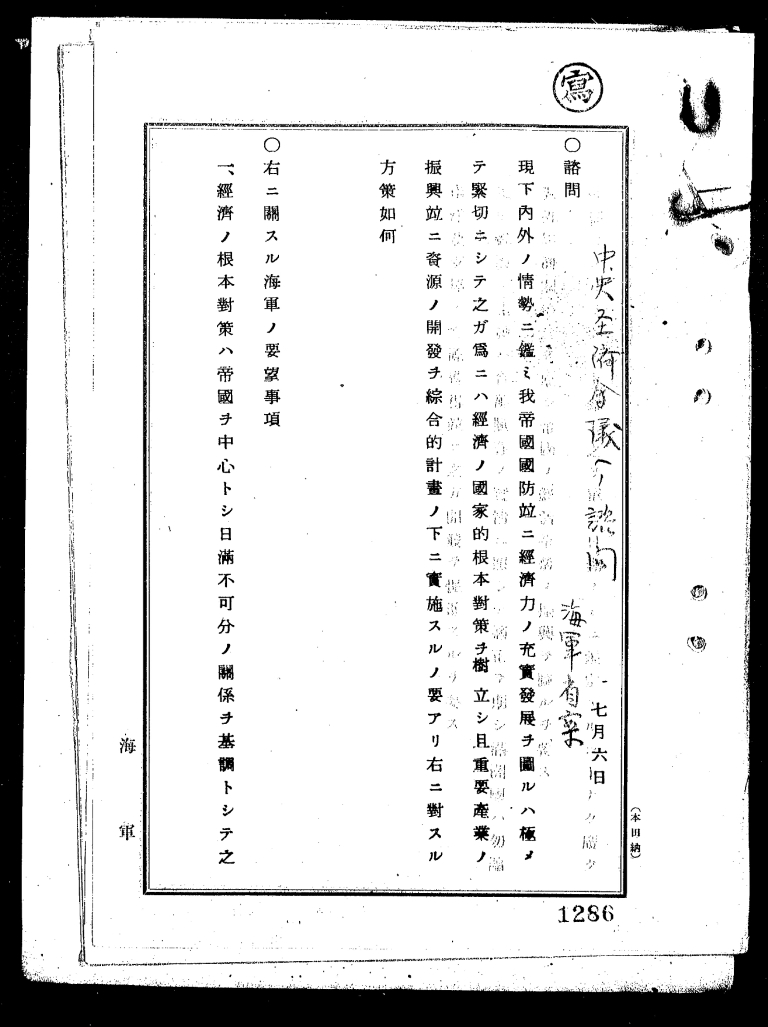 寫
中央経済会議ヘノ諮問
海軍省案
七月六日
〇諮問
現下內外ノ情勢ニ鑑ミ我帝國國防竝ニ經濟力ノ充實發展ヲ圖ルハ極メ
テ緊切ニシテ之ガ爲ニハ經濟ノ國家的根本對策ヲ樹立シ且重要產業ノ
振興竝ニ資源ノ開發ヲ綜合的計畫ノ下ニ實施スルノ要アリ右ニ對スル
方策如何
〇右ニ關スル海軍ノ要望事項
一、經濟ノ根本對策ハ帝國ヲ中心トシ日滿不可分ノ關係ヲ基調トシテ之
海軍
(本田納)
1286